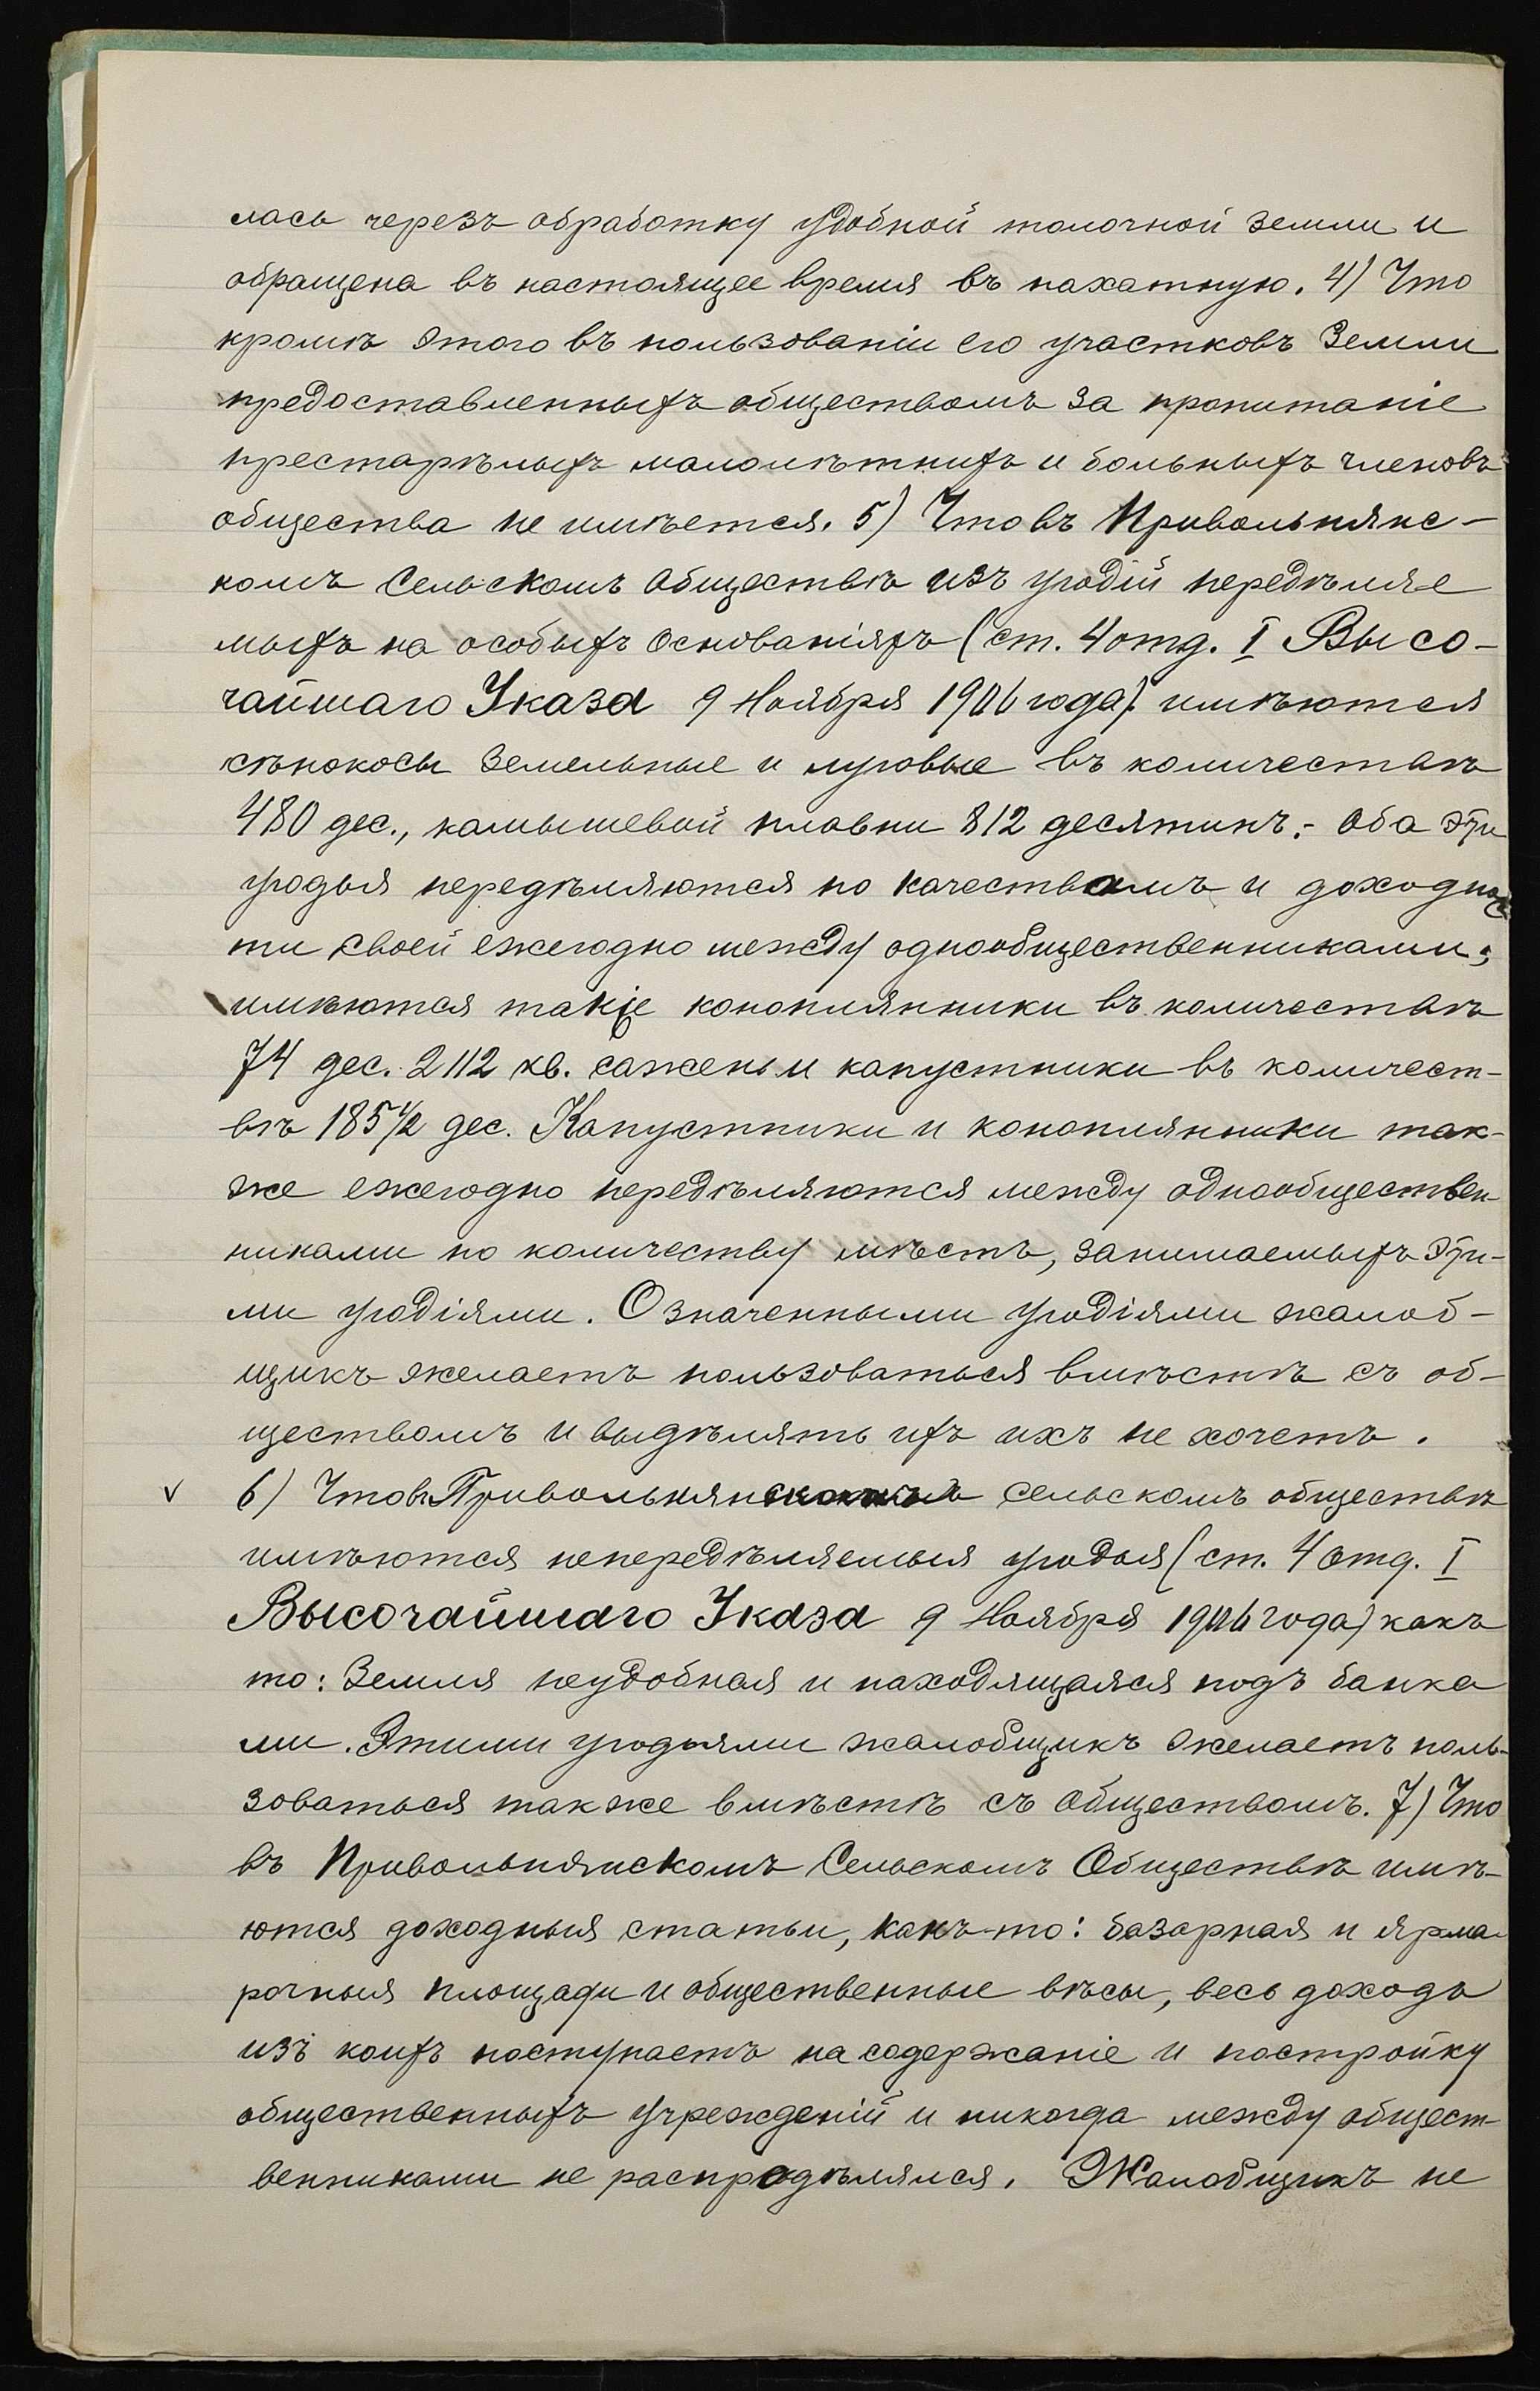 лась черезъ обработку удобной толочной земли и
обращена въ настоящее время въ пахатную. 4) Что
кромѣ этого въ пользованіи его участковъ земли
предоставленныхъ обществомъ за пропитаніе
престарѣлыхъ малолѣтнихъ и больныхъ членовъ
общества не имѣется. 5) Что въ Привольнянс-
комъ Сельскомъ Обществѣ изъ угодій передѣляе
мыхъ на особыхъ основаніяхъ (ст. 4 отд. I Высо-
чайшаго Указа 9 Ноября 1906 года) имѣются
сѣнокосы земельные и луговые въ количествѣ
480 дес., камышевой плавни 812 десятинъ.- Оба эти
угодья передѣляются по качествамъ и доходнос
ти своей ежегодно между однообщественниками;
имѣются также конопляники въ количествѣ
74 дес. 2112 кв. сажень и капустники въ количест-
вѣ 185 1/2 дес. Капустники и конопляники так-
же ежегодно передѣляются между однообществен-
никами по количеству мѣстъ, занимаемыхъ эти-
ми угодіями. Означенными угодіями жалоб-
щикъ желаетъ пользоваться вмѣстѣ съ об-
ществомъ и выдѣлять ихъ ихъ не хочетъ.
v 6) Что въ Привольнянскомъ сельскомъ обществѣ
имѣются непередѣляемыя угодья (ст. 4 отд. I
Высочайшаго Указа 9 Ноября 1906 года) какъ
то: Земля неудобная и находящаяся подъ банка
ми. Этими угодьями жалобщикъ желаетъ поль-
зоваться также вмѣстѣ съ обществомъ. 7) Что
въ Привольнянскомъ Сельскомъ Обществѣ имѣ-
ются доходныя статьи, какъ-то: базарная и ярма-
рочныя площади и общественные вѣсы, весь доходъ
изъ коихъ поступаетъ на содержаніе и постройку
общественныхъ учрежденій и никогда между общест-
венниками не распредѣлялся. Жалобщикъ не